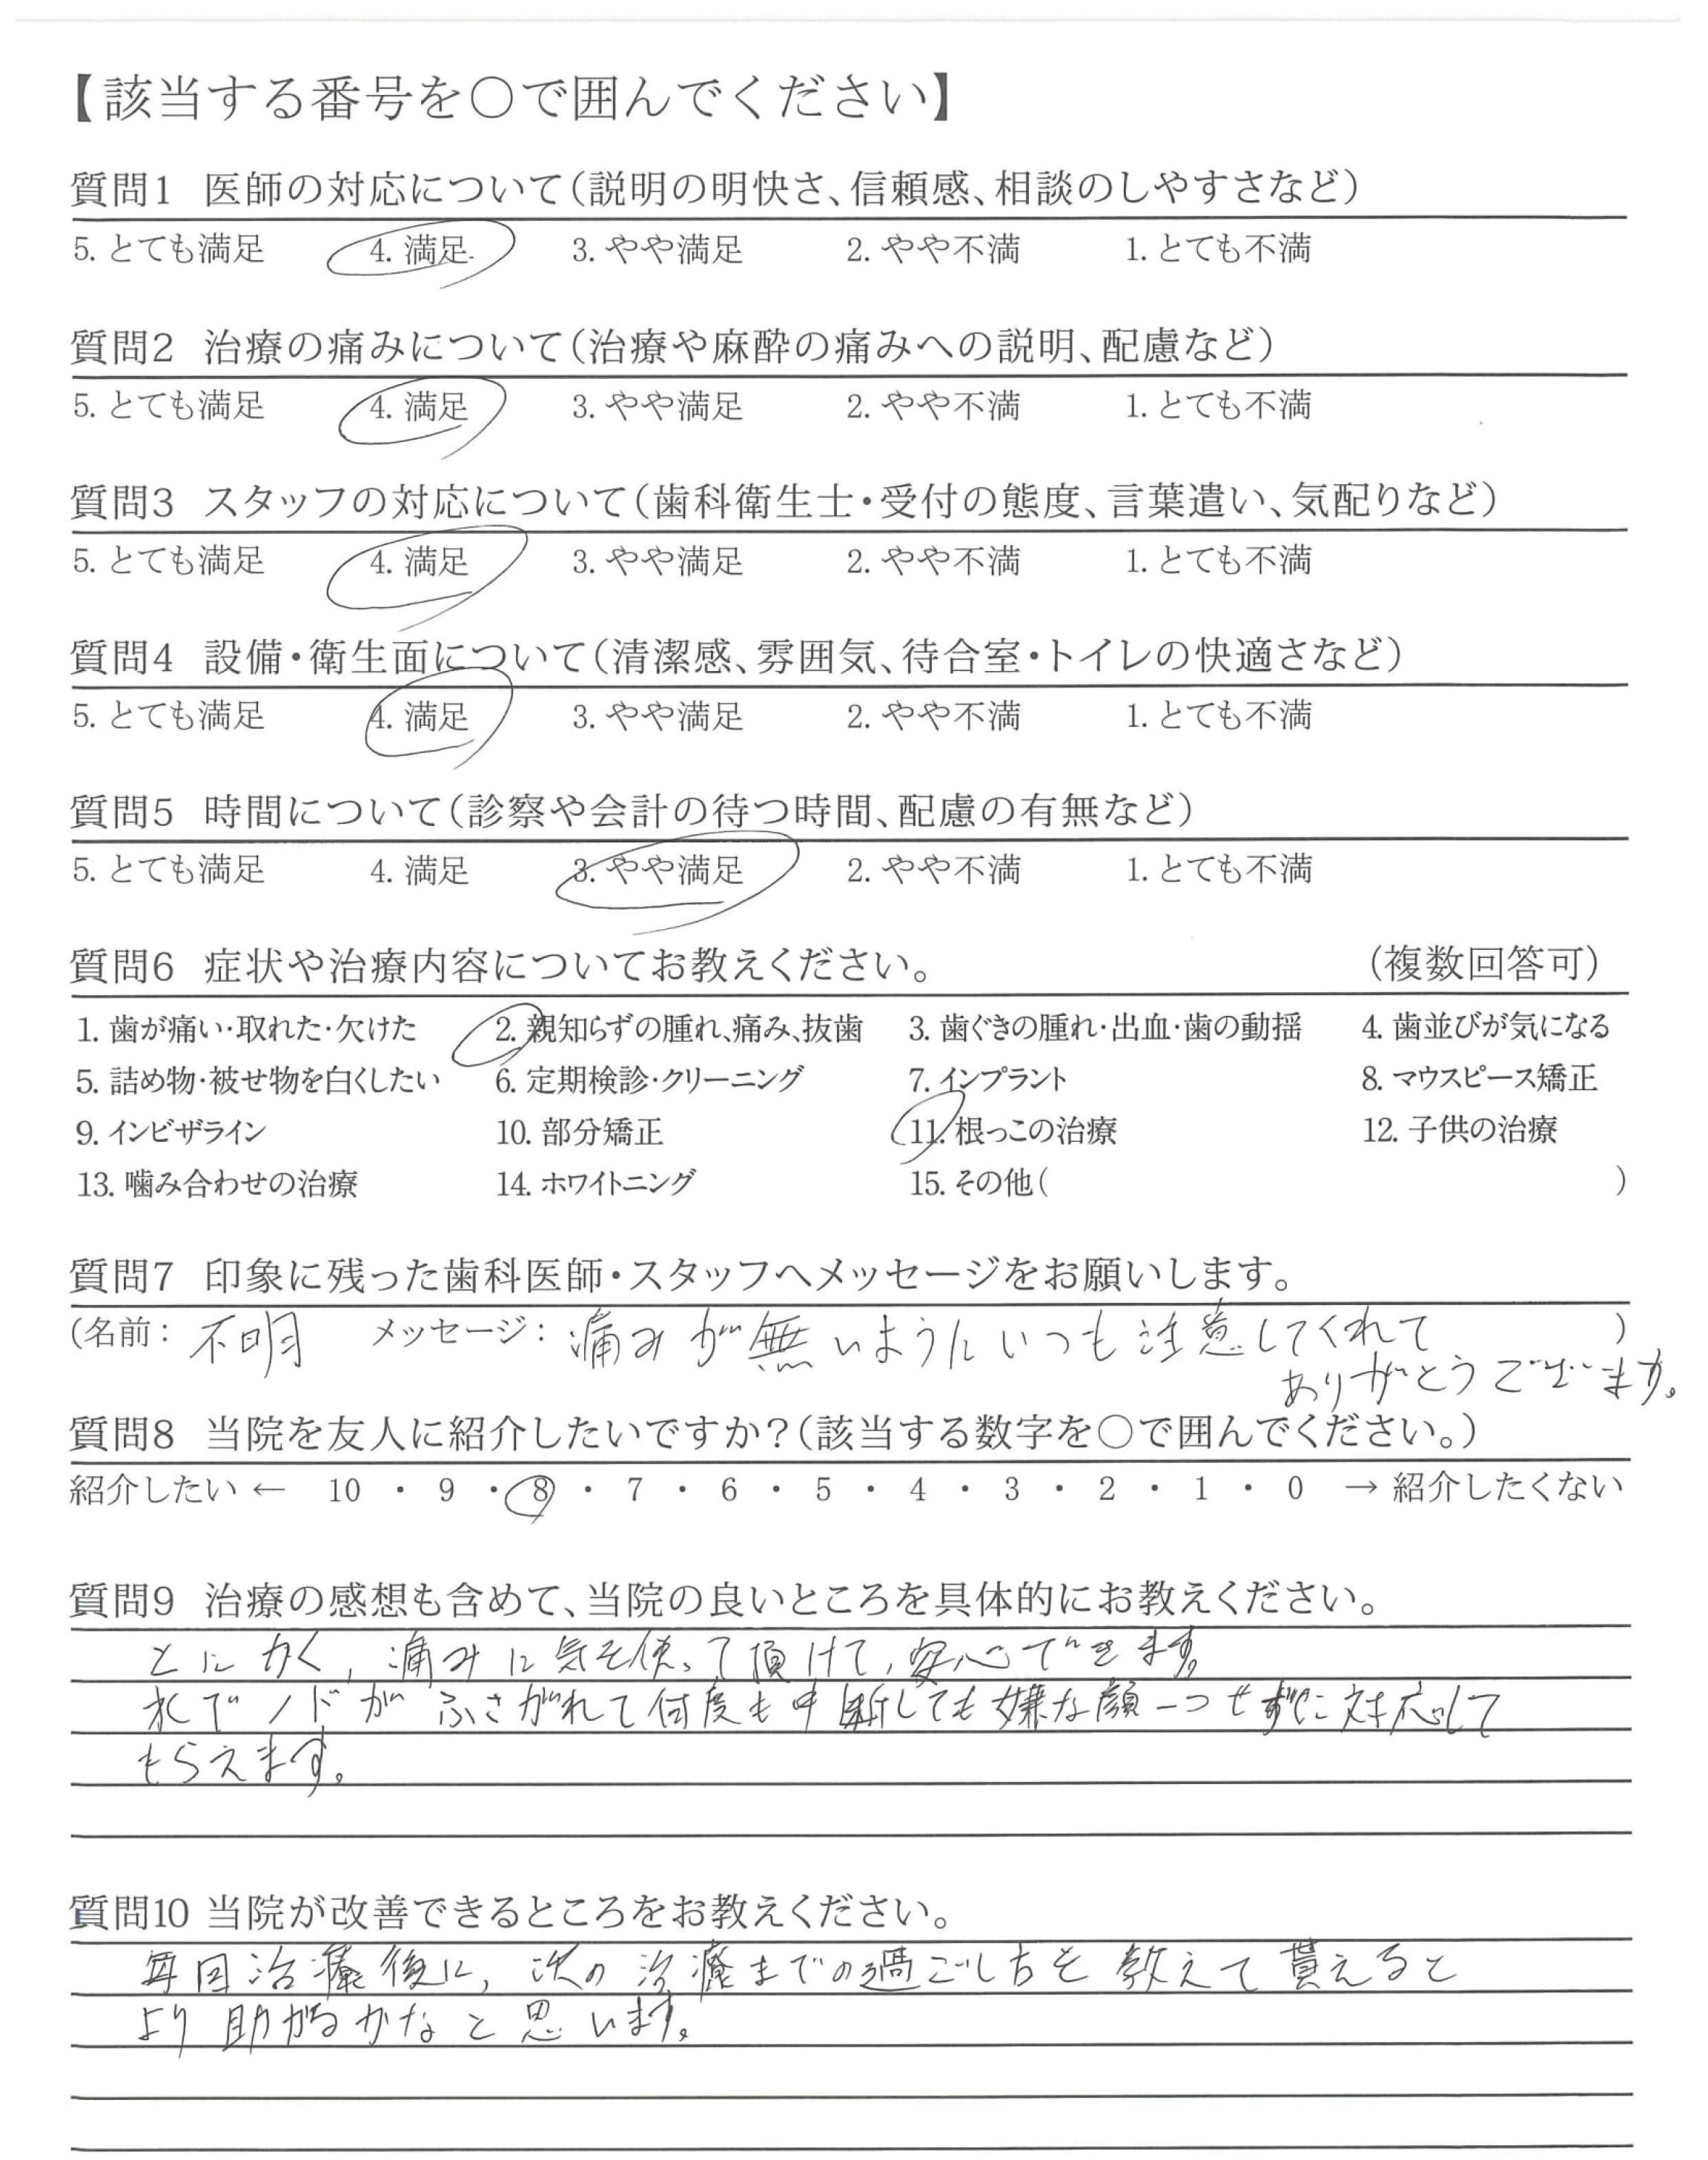 【該当する番号を○で囲んでください】
質問1 医師の対応について（説明の明快さ、信頼感、相談のしやすさなど）
5. とても満足 4. 満足 3. やや満足 2. やや不満 1. とても不満
質問2 治療の痛みについて（治療や麻酔の痛みへの説明、配慮など）
5. とても満足 4. 満足 3. やや満足 2. やや不満 1. とても不満
質問3 スタッフの対応について（歯科衛生士・受付の態度、言葉遣い、気配りなど）
5. とても満足 4. 満足 3. やや満足 2. やや不満 1. とても不満
質問4 設備・衛生面について（清潔感、雰囲気、待合室・トイレの快適さなど）
5. とても満足 4. 満足 3. やや満足 2. やや不満 1. とても不満
質問5 時間について（診察や会計の待つ時間、配慮の有無など）
5. とても満足 4. 満足 3. やや満足 2. やや不満 1. とても不満
質問6 症状や治療内容についてお教えください。 （複数回答可）
1. 歯が痛い・取れた・欠けた 2. 親知らずの腫れ、痛み、抜歯 3. 歯ぐきの腫れ・出血・歯の動揺 4. 歯並びが気になる
5. 詰め物・被せ物を白くしたい 6. 定期検診・クリーニング 7. インプラント 8. マウスピース矯正
9. インビザライン 10. 部分矯正 11. 根っこの治療 12. 子供の治療
13. 噛み合わせの治療 14. ホワイトニング 15. その他（ ）
質問7 印象に残った歯科医師・スタッフへメッセージをお願いします。
（名前： 不明 メッセージ： 痛みが無いようにいつも注意してくれて ）
ありがとうございます。
質問8 当院を友人に紹介したいですか？（該当する数字を○で囲んでください。）
紹介したい ← 10 ・ 9 ・ 8 ・ 7 ・ 6 ・ 5 ・ 4 ・ 3 ・ 2 ・ 1 ・ 0 → 紹介したくない
質問9 治療の感想も含めて、当院の良いところを具体的にお教えください。
とにかく、痛みに気を使って頂けて、安心できます。
水でノドがふさがれて何度も中断しても嫌な顔一つせずに対応して
もらえます。
質問10 当院が改善できるところをお教えください。
毎回治療後に、次の治療までの過ごし方を教えて貰えると
より助かるかなと思います。